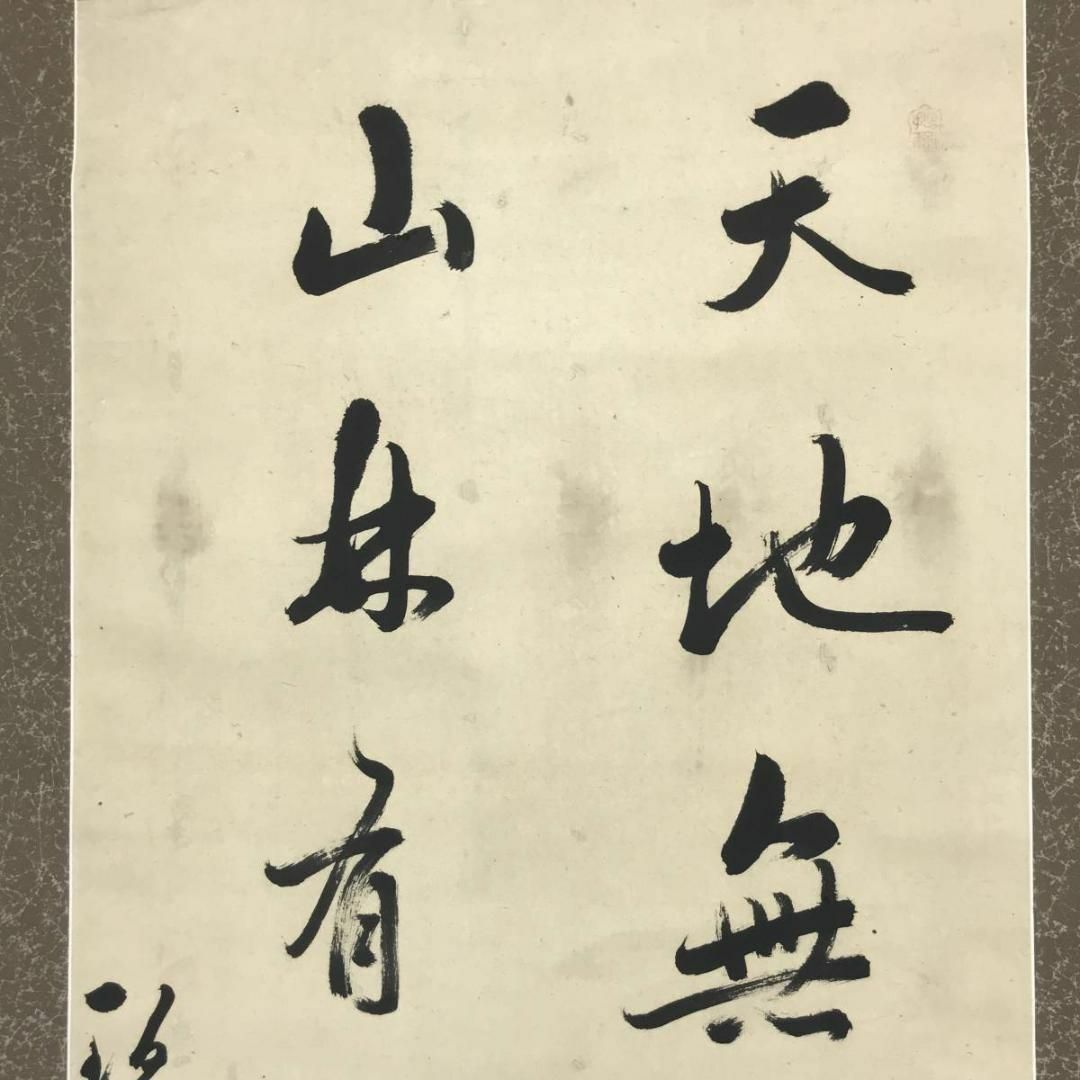 天地無
山林有